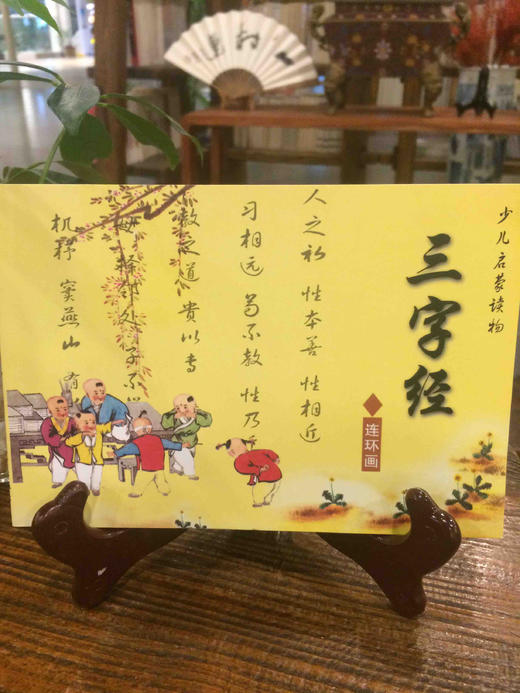 少儿启蒙读物
三字经
连环画
人之初 性本善 性相近
习相远 苟不教 性乃
教之道 贵以专
母 择邻处 子不
机杼 窦燕山 有